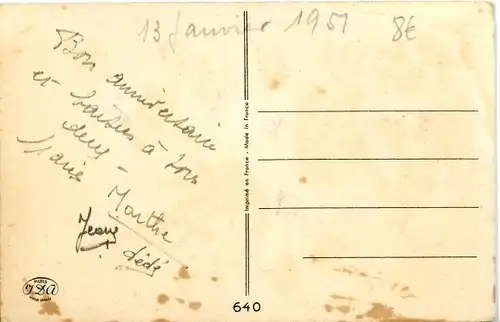 13 Janvier 1951
8€
Bon anniversaire
et baisers à tous
deux -
Marthe
Jean
Dédé
Imprimé en France - Made in France
PARIS
640